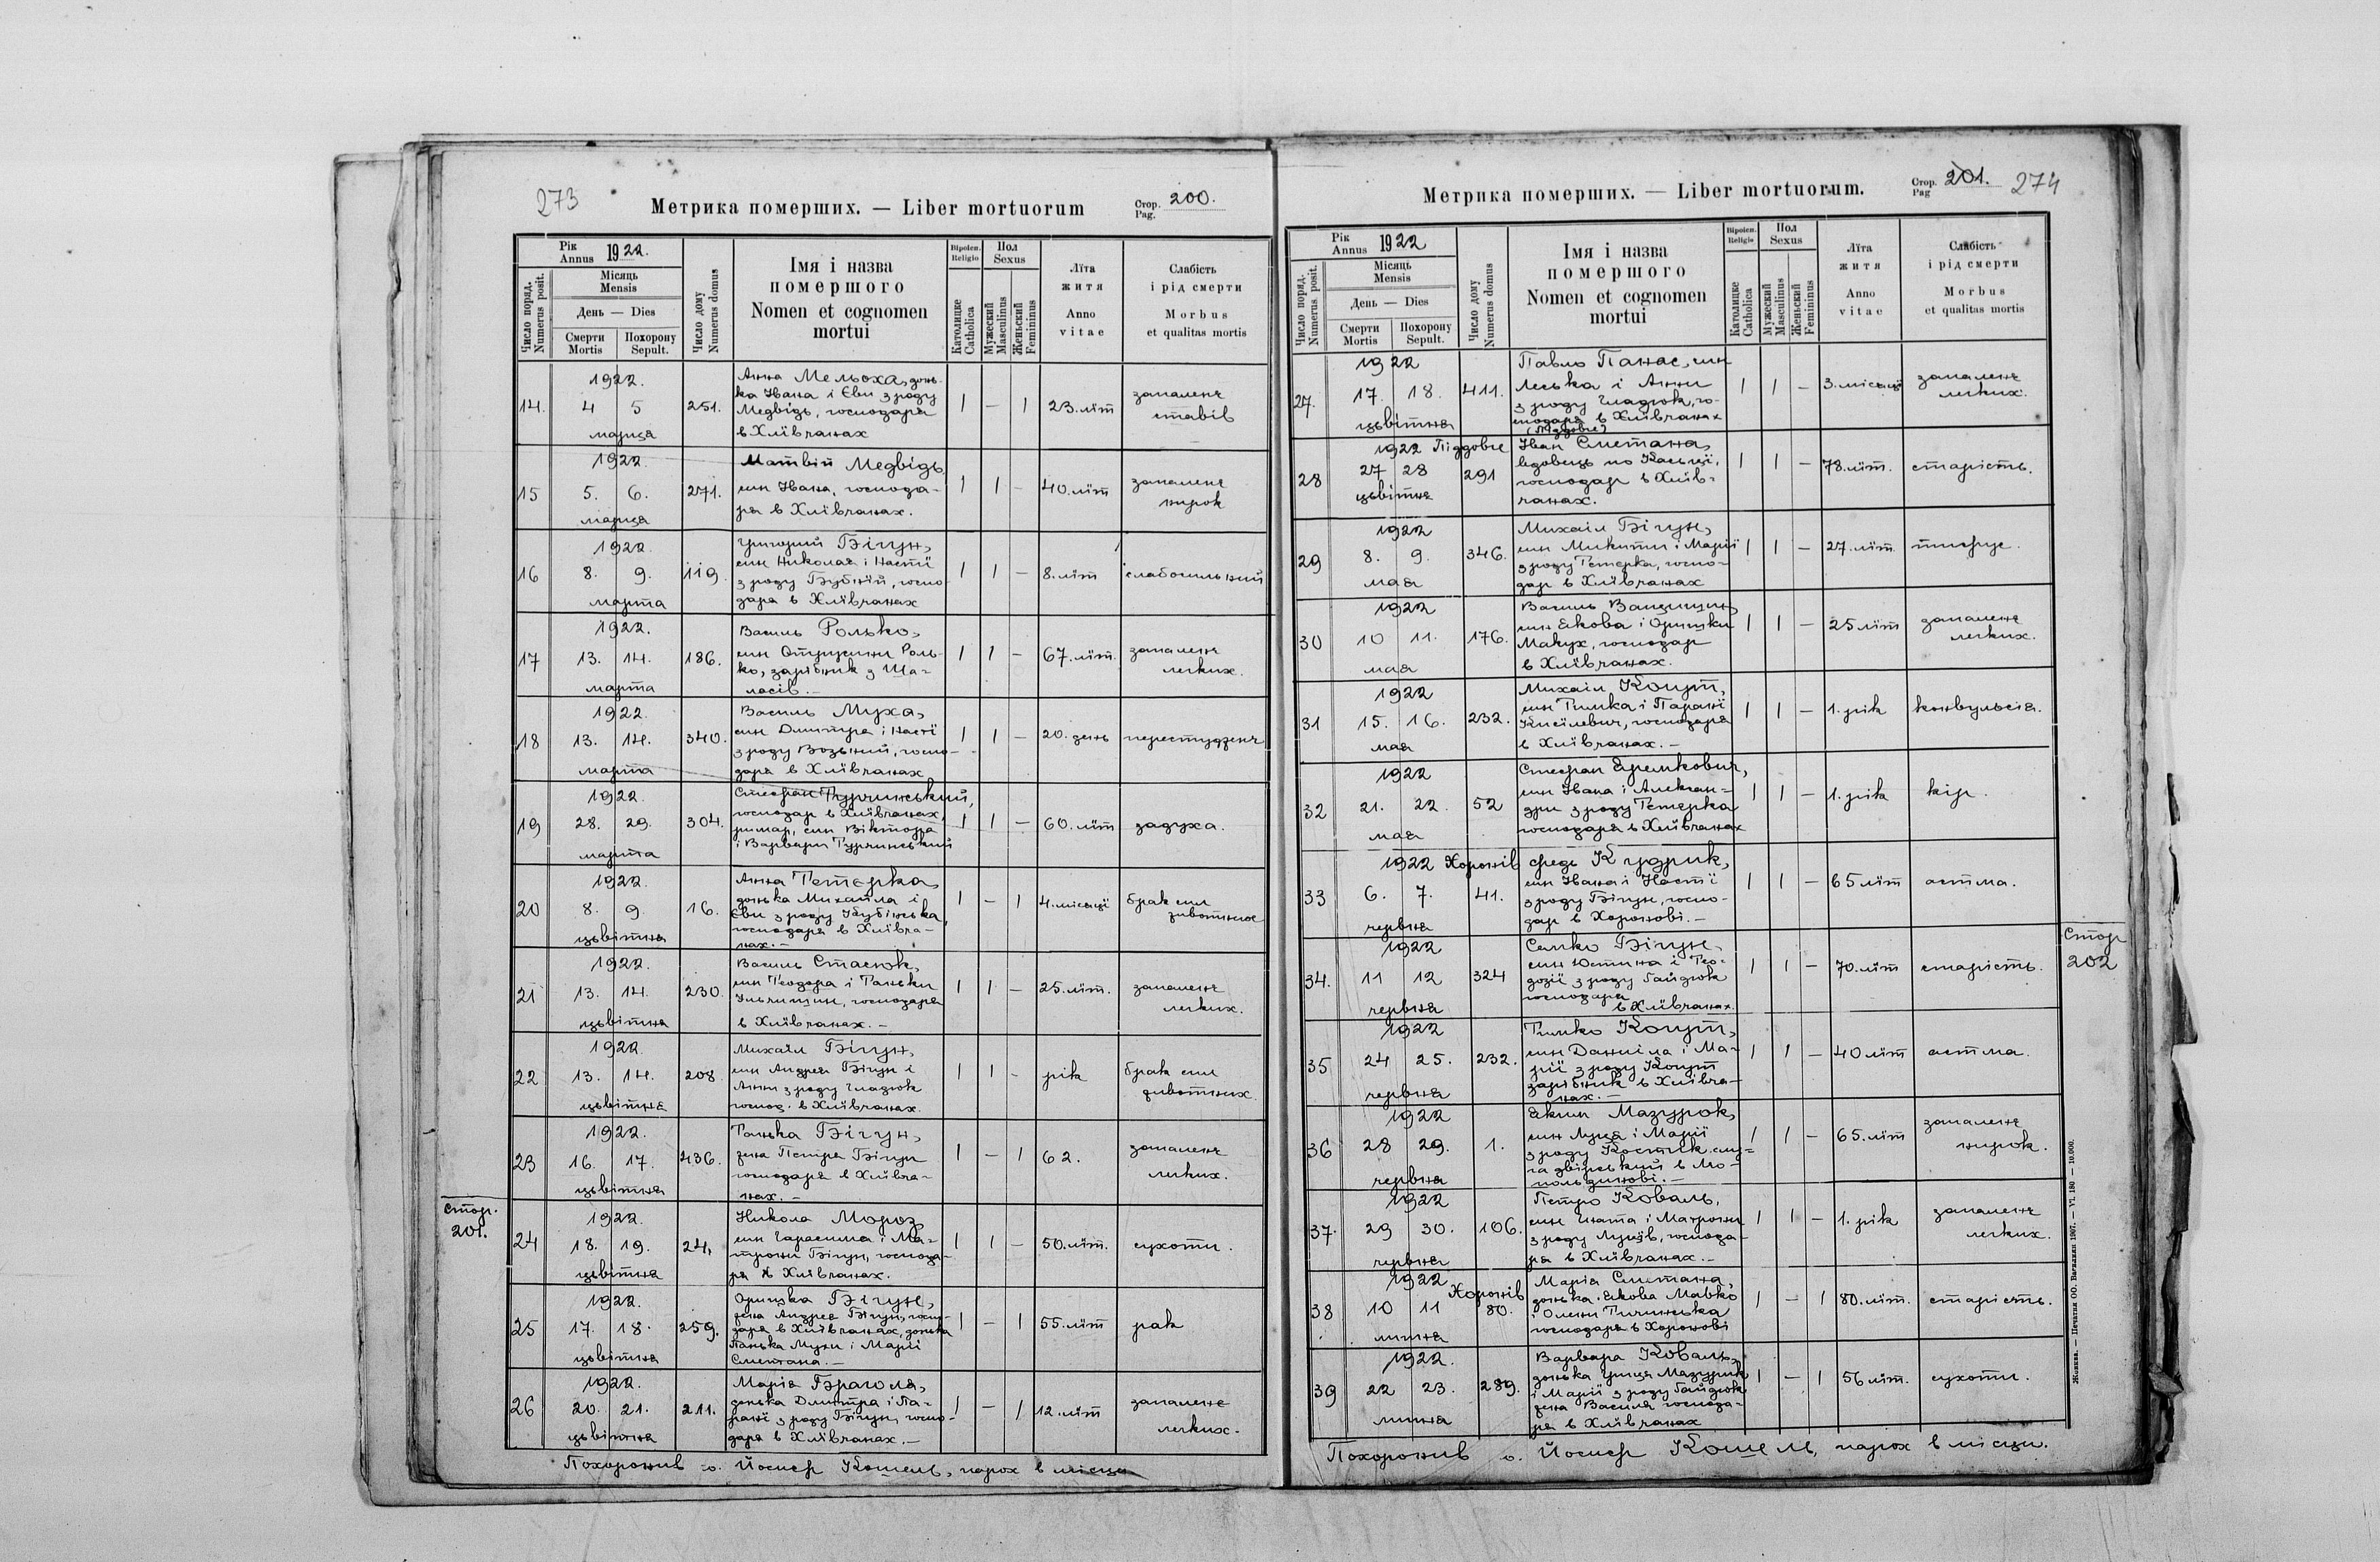 273
Метрика померших. — Liber mortuorum
Стор. Pag. 200.
Рік Annus 1922.
Місяць Mensis
День — Dies
Число поряд. Numerus posit.
Смерти Mortis
Похорону Sepult.
Число дому Numerus domus
Імя і назва
помершого
Nomen et cognomen
mortui
Віроісп. Religio
Католицке Catholica
Пол Sexus
Мужеский Masculinus
Женьский Femininus
Лїта
житя
Anno
vitae
Слабість
і рід смерти
Morbus
et qualitas mortis
14. 1922. 4 5 марца 251.
Анна Мельоха, донь-
ка Івана і Єви з роду
Медвідь, господаря
в Хлївчанах
1 — 1 23. лїт запаленє ставів
15 1922. 5. 6. марца 271.
Матвій Медвідь
син Івана, господа-
ря в Хлївчанах.
1 1 — 40. лїт запаленє нирок
16 1922. 8. 9. марта 119.
Григорий Бігун,
син Николая і Настї
з роду Бубній, госпо-
даря в Хлївчанах
1 1 — 8. лїт слабосильний
17 1922. 13. 14. марта 186.
Василь Ролько,
син Ролько, зарібник з
1 1 — 67. лїт. запаленє легких.
18 1922. 13. 14. марта 340.
Василь Муха,
син Дмитра і Настї
з роду Возьний, госпо-
даря в Хлївчанах
1 1 — 20. день перестудженє
19 1922. 28. 29. марта 304.
Стефан Турчинський,
господар в Хлївчанах,
римар, син Віктора
і Варвари Турчинський
1 1 — 60. лїт задуха.
20 1922. 8. 9. цьвітня 16.
Анна Тетерка,
донька Михайла і
Єви з роду Кубінська,
господаря в Хлївча-
нах. —
1 — 1 4. місяцї брак сил животних
21 1922. 13. 14. цьвітня 230.
Василь Стасюк,
син Теодора і Таньки
Ільчишин, господаря
в Хлївчанах. —
1 1 — 25. лїт. запаленє легких.
22 1922. 13. 14. цьвітня 208.
Михайл Бігун,
син Андрея Бігун і
Анни з роду Гладюк
господ. в Хлївчанах.
1 1 — рік брак сил животних.
23 1922. 16. 17. цьвітня 436.
Танька Бігун,
жена Петра Бігун
господаря в Хлївча-
нах. —
1 — 1 62. запаленє легких.
стор. 201.
24 1922. 18. 19. цьвітня 24.
Никола Мороз,
син Гарасима і Ма-
трони Бігун, господа-
ря в Хлївчанах.
1 1 — 50. лїт. сухоти.
25 1922. 17. 18. цьвітня 259.
Оришка Бігун,
жена Андрея Бігун, госпо-
даря в Хлївчанах, донька
Панька Мухи і Марії
Сметана. —
1 — 1 55. лїт рак
26 1922. 20. 21. цьвітня 211.
Марія Браголя,
донька Дмитра і Па-
ранї з роду Бігун, госпо-
даря в Хлївчанах. —
1 — 1 12. лїт запаленє легких.
Похоронив о. Йосиф Кошель, парох в місци
Метрика померших. — Liber mortuorum.
Стор. Pag 201. 274
Рік Annus 1922
Місяць Mensis
День — Dies
Число поряд. Numerus posit.
Смерти Mortis
Похорону Sepult.
Число дому Numerus domus
Імя і назва
помершого
Nomen et cognomen
mortui
Віроісп. Religio
Католицке Catholica
Пол Sexus
Мужеский Masculinus
Женьский Femininus
Лїта
житя
Anno
vitae
Слабість
і рід смерти
Morbus
et qualitas mortis
27. 1922 17. 18. цьвітня 411.
Павло Панас, син
Леська і Анни
з роду Гладюк, го-
сподаря в Хлївчанах
(Піддовге)
1 1 — 3. місяцї запаленє легких.
28 1922 27 28 цьвітня Піддовге 291
Іван Сметана,
вдовець по Каські,
господар в Хлїв-
чанах.
1 1 — 78. лїт. старість.
29 1922 8. 9. мая 346.
Михаіл Бігун,
син Микити і Марії
з роду Тетерка, госпо-
дар в Хлївчанах
1 1 — 27. лїт тифус.
30 1922 10 11. мая 176.
Василь Ващишин,
син Якова і Оришки
Макух, господар
в Хлївчанах.
1 1 — 25 лїт запаленє легких.
31 1922 15. 16. мая 232.
Михаіл Коцут,
син Тимка і Паранї
Кисїлевич, господаря
в Хлївчанах. —
1 1 — 1. рік конвульсія.
32 1922 21. 22. мая 52
Стефан Яремкович,
син Івана і Алексан-
дри з роду Тетерка
господаря в Хлївчанах
1 1 — 1. рік кір.
33 1922 6. 7. червня Хоронів 41.
Федь Кудрик,
син Івана і Настї
з роду Бігун, госпо-
дар в Хоронові. —
1 1 — 65 лїт астма.
34. 1922 11 12 червня 324
Семко Бігун,
син Юстина і Тео-
дозії з роду Гайдюк
господаря
в Хлївчанах.
1 1 — 70. лїт старість.
Стор 202
35 1922 24 25. червня 232.
Тимко Коцут,
син Даниіла і Ма-
рії з роду Коцут
зарібник в Хлївча-
нах. —
1 1 — 40 лїт астма.
36 1922 28 29. червня 1.
Яким Мазурок,
син Луця і Марії
з роду Костик, слу-
га двірський в
1 1 — 65. лїт запаленє нирок.
37. 1922 29 30. червня 106.
Петро Коваль,
син Гната і Матрони
з роду Луців, господа-
ря в Хлївчанах. —
1 1 — 1. рік запаленє легких.
38 1922 10 11 липня Хоронів 80.
Марія Сметана,
донька Якова Мавко
і Олени Тичинська
господаря в Хоронові
1 — 1 80. лїт. старість.
39 1922. 22 23. липня 289.
Варвара Коваль,
донька Гриця Мазурик
і Марії з роду Гайдюк
жена Василя господа-
ря в Хлївчанах
1 — 1 56 лїт. сухоти.
Похоронив о. Йосиф Кошель, парох в місци.
Жовква. — Печатня ОО. Василиян 1907. — VI. 180 — 10.000.